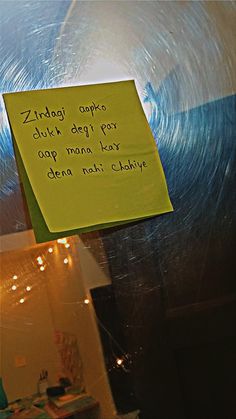 Zindagi aapko
dukh degi par
aap mana kar
dena nahi chahiye